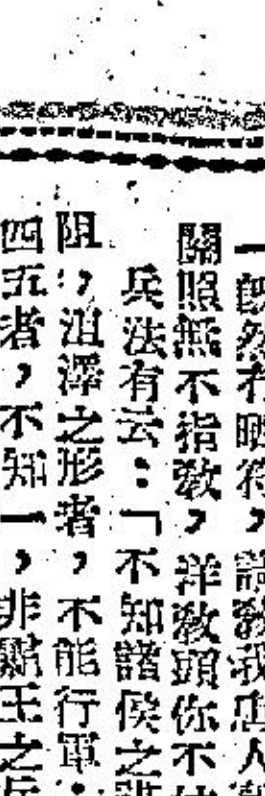 一既然有暗符，請教我
關照無不指教，洋教頭你不
兵法有云：「不知諸侯之
阻，沮澤之形者，不能行軍：
四五者，不知一，非霸王之兵